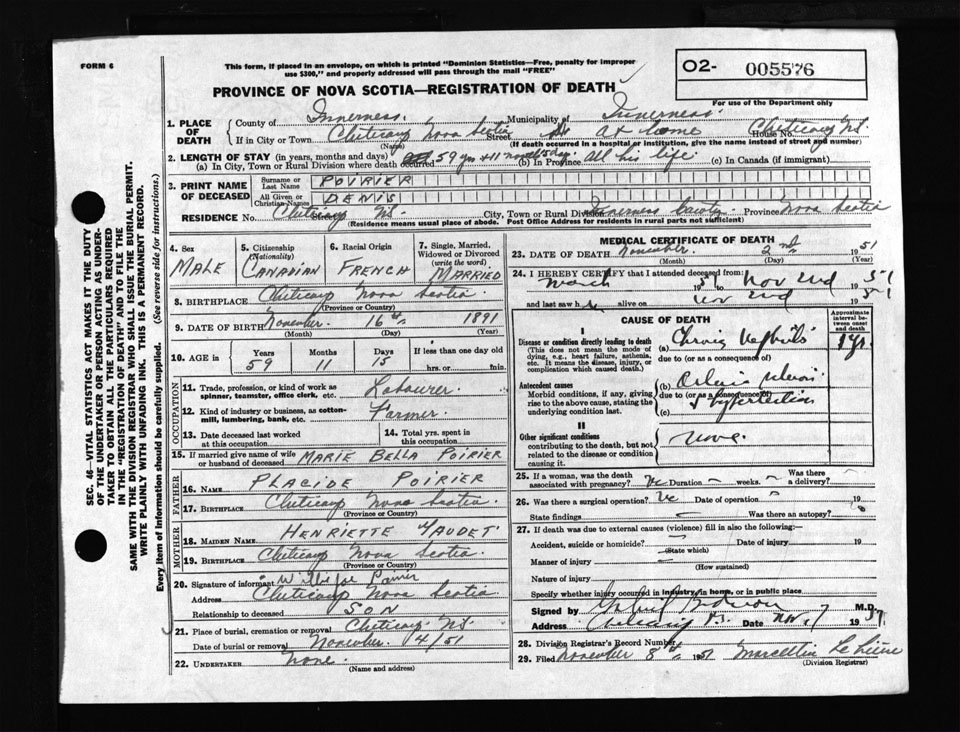 FORM 6
This form, if placed in an envelope, on which is printed "Dominion Statistics—Free, penalty for improper
use $300," and properly addressed will pass through the mail "FREE"
O2- 005576
For use of the Department only
PROVINCE OF NOVA SCOTIA—REGISTRATION OF DEATH
1. PLACE OF DEATH
County of Inverness. Municipality of Inverness.
If in City or Town Cheticamp Nova Scotia Street at home House No. Cheticamp N.S.
(Name) (If death occurred in a hospital or institution, give name instead of street and number)
2. LENGTH OF STAY (in years, months and days)
(a) In City, Town or Rural Division where death occurred 59 yrs + 11 months (b) In Province All his life (c) In Canada (if immigrant)
3. PRINT NAME OF DECEASED
Surname or Last Name POIRIER
All Given or Christian Names DENIS
RESIDENCE No. Cheticamp N.S. Street City, Town or Rural Division Inverness County Province Nova Scotia
(Residence means usual place of abode. Post Office Address for residents in rural parts not sufficient)
4. Sex MALE
5. Citizenship (Nationality) CANADIAN
6. Racial Origin FRENCH
7. Single, Married, Widowed or Divorced (write the word) MARRIED
8. BIRTHPLACE Cheticamp Nova Scotia
(Province or Country)
9. DATE OF BIRTH November 16th 1891
(Month) (Day) (Year)
10. AGE in Years Months Days If less than one day old
59 11 15 hrs. or min.
OCCUPATION
11. Trade, profession, or kind of work as
spinner, teamster, office clerk, etc. Labourer
12. Kind of industry or business, as cotton-
mill, lumbering, bank, etc. Farmer.
13. Date deceased last worked
at this occupation
14. Total yrs. spent in
this occupation
15. If married give name of wife
or husband of deceased MARIE BELLA POIRIER
FATHER
16. Name PLACIDE POIRIER
17. Birthplace Cheticamp Nova Scotia
(Province or Country)
MOTHER
18. MAIDEN NAME HENRIETTE MAUDET
19. BIRTHPLACE Cheticamp Nova Scotia.
(Province or Country)
20. Signature of informant
Address Cheticamp Nova Scotia
Relationship to deceased SON
21. Place of burial, cremation or removal Cheticamp N.S.
Date of burial or removal November /4/51
22. UNDERTAKER None.
(Name and address)
MEDICAL CERTIFICATE OF DEATH
23. DATE OF DEATH November 2nd 1951
(Month) (Day) (Year)
24. I HEREBY CERTIFY that I attended deceased from
March 1951 to Nov 2nd 1951
and last saw h alive on Nov 2nd 1951
CAUSE OF DEATH
Approximate interval between onset and death
I
Disease or condition directly leading to death
(This does not mean the mode of
dying, e.g., heart failure, asthenia,
etc. It means the disease, injury, or
complication which caused death.)
(a) Chronic Nephritis 1 yr.
due to (or as a consequence of)
Antecedent causes
Morbid conditions, if any, giving
rise to the above cause, stating the
underlying condition last.
(b)
due to (or as a consequence of)
& hypertention
(c)
II
Other significant conditions
contributing to the death, but not
related to the disease or condition
causing it.
None.
25. If a woman, was the death
associated with pregnancy? Duration — weeks. Was there a delivery?
26. Was there a surgical operation? Date of operation 19
State findings Was there an autopsy?
27. If death was due to external causes (violence) fill in also the following:—
Accident, suicide or homicide? Date of injury 19
(State which)
Manner of injury
(How sustained)
Nature of injury
Specify whether injury occurred in industry, in home, or in public place
Signed by M.D.
Address Cheticamp N.S. Date Nov 7 1951
28. Division Registrar's Record Number
29. Filed November 8th 1951 Marcellin
(Division Registrar)
SEC. 46—VITAL STATISTICS ACT MAKES IT THE DUTY
OF THE UNDERTAKER OR PERSON ACTING AS UNDER-
TAKER TO OBTAIN ALL THE PARTICULARS REQUIRED
IN THE "REGISTRATION OF DEATH" AND TO FILE THE
SAME WITH THE DIVISION REGISTRAR WHO SHALL ISSUE THE BURIAL PERMIT.
WRITE PLAINLY WITH UNFADING INK. THIS IS A PERMANENT RECORD.
Every item of Information should be carefully supplied. (See reverse side for instructions.)